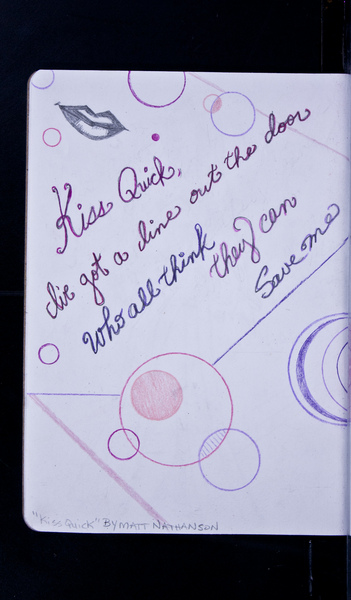 Kiss Quick,
I've got a line out the door
Who all think
they can
Save me
"Kiss Quick" BY MATT NATHANSON